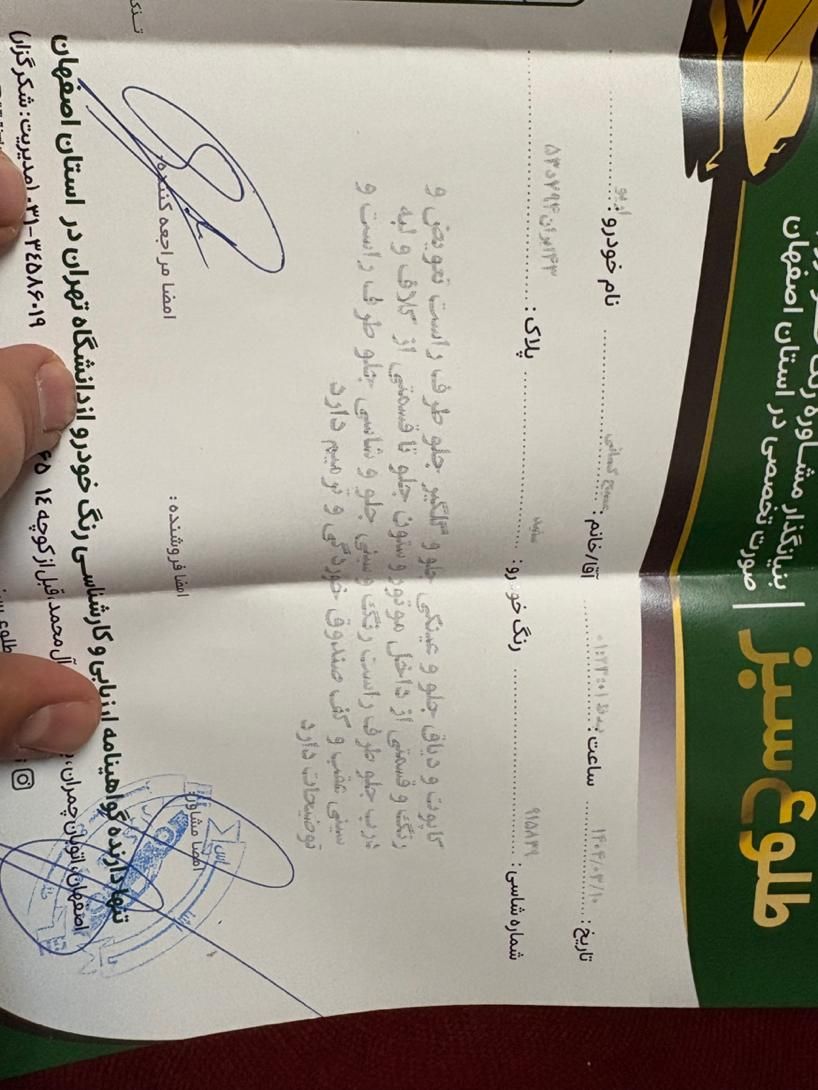 طلوع سبز
بنیانگذار مشاوره رنگ
صورت تخصصی در استان اصفهان
تاریخ: ۱۴۰۴/۰۳/۱۰ ساعت: ۰۱:۲۳:۰۱ بدظ آقا/خانم: نام خودرو:
شماره شاسی: ۹۱۵۸۳۹ رنگ خودرو: سفید پلاک:
کاپوت و دیاق جلو و عینکی جلو و گلگیر جلو طرف راست تعویض و
رنگ و قسمتی از داخل موتور و ستون جلو تا قسمتی از کلاف و لبه
درب جلو طرف راست رنگ و سینی جلو و شاسی جلو طرف راست و
سینی عقب و کف صندوق خوردگی و ترمیم دارد
توضیحات دارد
امضا مشاور: امضا فروشنده: امضا مراجعه کننده:
تنها دارنده گواهینامه ارزیابی و کارشناسی رنگ خودرو از دانشگاه تهران در استان اصفهان
اصفهان، اتوبان چمران، آل محمد، قبل از کوچه ۱۴ ۰۳۱-۳۴۵۸۶۰۱۹ (مدیریت: شکرگزار)